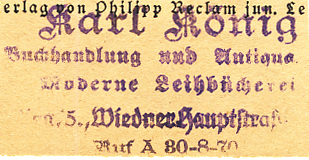 erlag von Philipp Reclam jun. Le
Karl König
Buchhandlung und Antiqua
Moderne Leihbücherei
5., Wiedner Hauptstraß
Ruf A 30-8-70